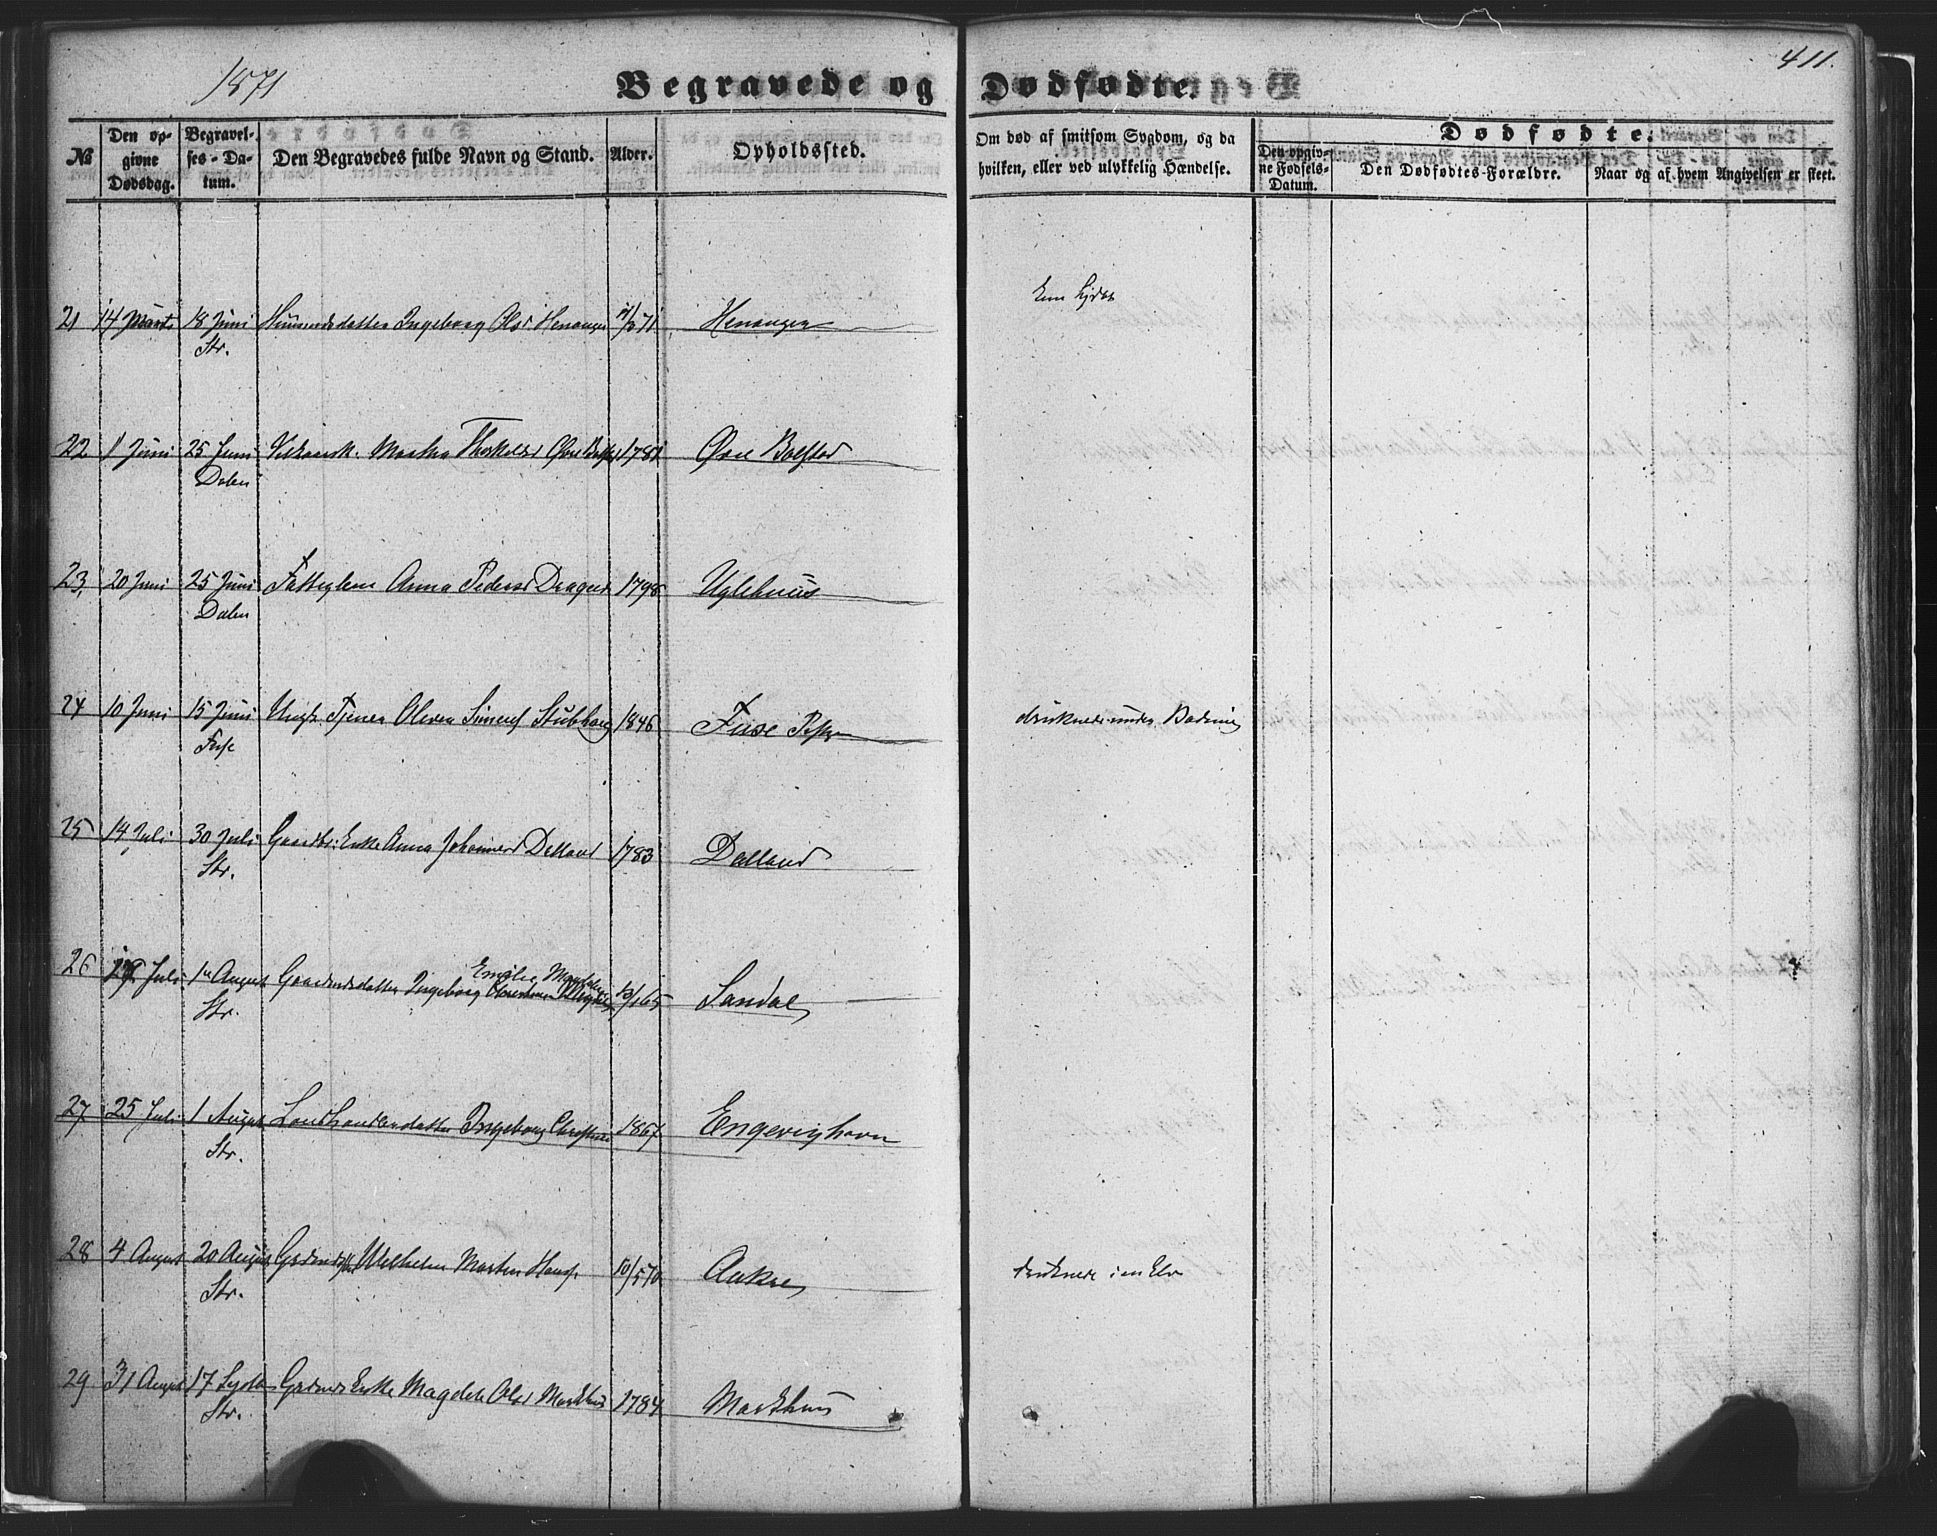 1871
411.
Begravede og Dødfødte.
№
Den opgivne Dødsdag.
Begravelses-Datum.
Den Begravedes fulde Navn og Stand.
Alder.
Opholdssted.
Om død af smitsom Sygdom, og da hvilken, eller ved ulykkelig Hændelse.
Dødfødte.
Den opgivne Fødsels-Datum.
Den Dødfødtes Forældre.
Naar og af hvem Angivelsen er skeet.
21 14 Marts 18 Juni Huusmdsdatter Ingeborg Olsd Henanger 71 Henanger
Str.
22 1 Juni 25 Juni Martha Thorkelsd 1781 Øvre Bolstad
Dalen
23, 20 Juni 25 Juni Fattiglem Anna Pedersd 1798 Uglehuus
Dalen
24 10 Juni 15 Juni Ungk. Tjener Oliver Simens Stubberg 1846 Fuse druknede under Badning
Fuse
25 14 Juli 30 Juli Gaardbr: Enke Anna Johannesd Dalland 1783 Dalland
Str.
26 Juli 1 August Gaardmdsdatter Ingeborg Emilie 65 Sandal
Str.
27 25 Juli 1 August Landhandlerdatter Ingeborg 1867 Engevighavn
Str.
28 4 August 20 August Wilhelm Martin Hans. 10/5 70 Aakre druknede i en Elv
Str.
29 31 August 17 Septb Grdmds Enke Magdele Olsd Markhus 1784 Markhuus
Str.